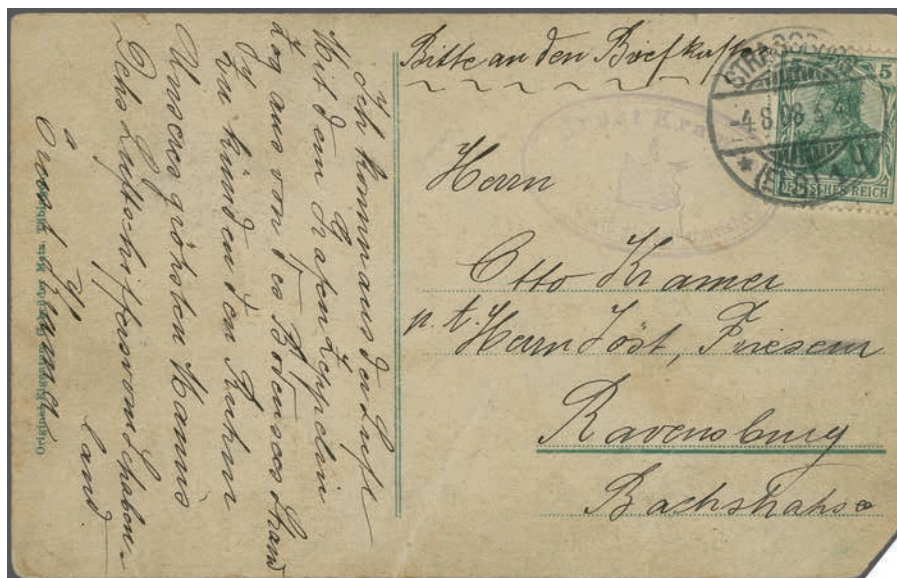 Bitte an den Briefkasten
STRASSBURG
-4.8.08
(ELS)
5
DEUTSCHES REICH
Ernst Kra
Herrn
Otto Kramer
p. t. Herrn Jöst, Friseur
Ravensburg
Bachstrasse
Ich komm aus der Luft
Mit dem Grafen Zeppelin
Zog aus von des Bodensees Strand
Zu künden den Ruhm
Unseres größten Manns
Des Luftschiffers vom Schaben-
land
Ernst Kramer
Original-Eigentum Gebrüder Metz, Tübingen